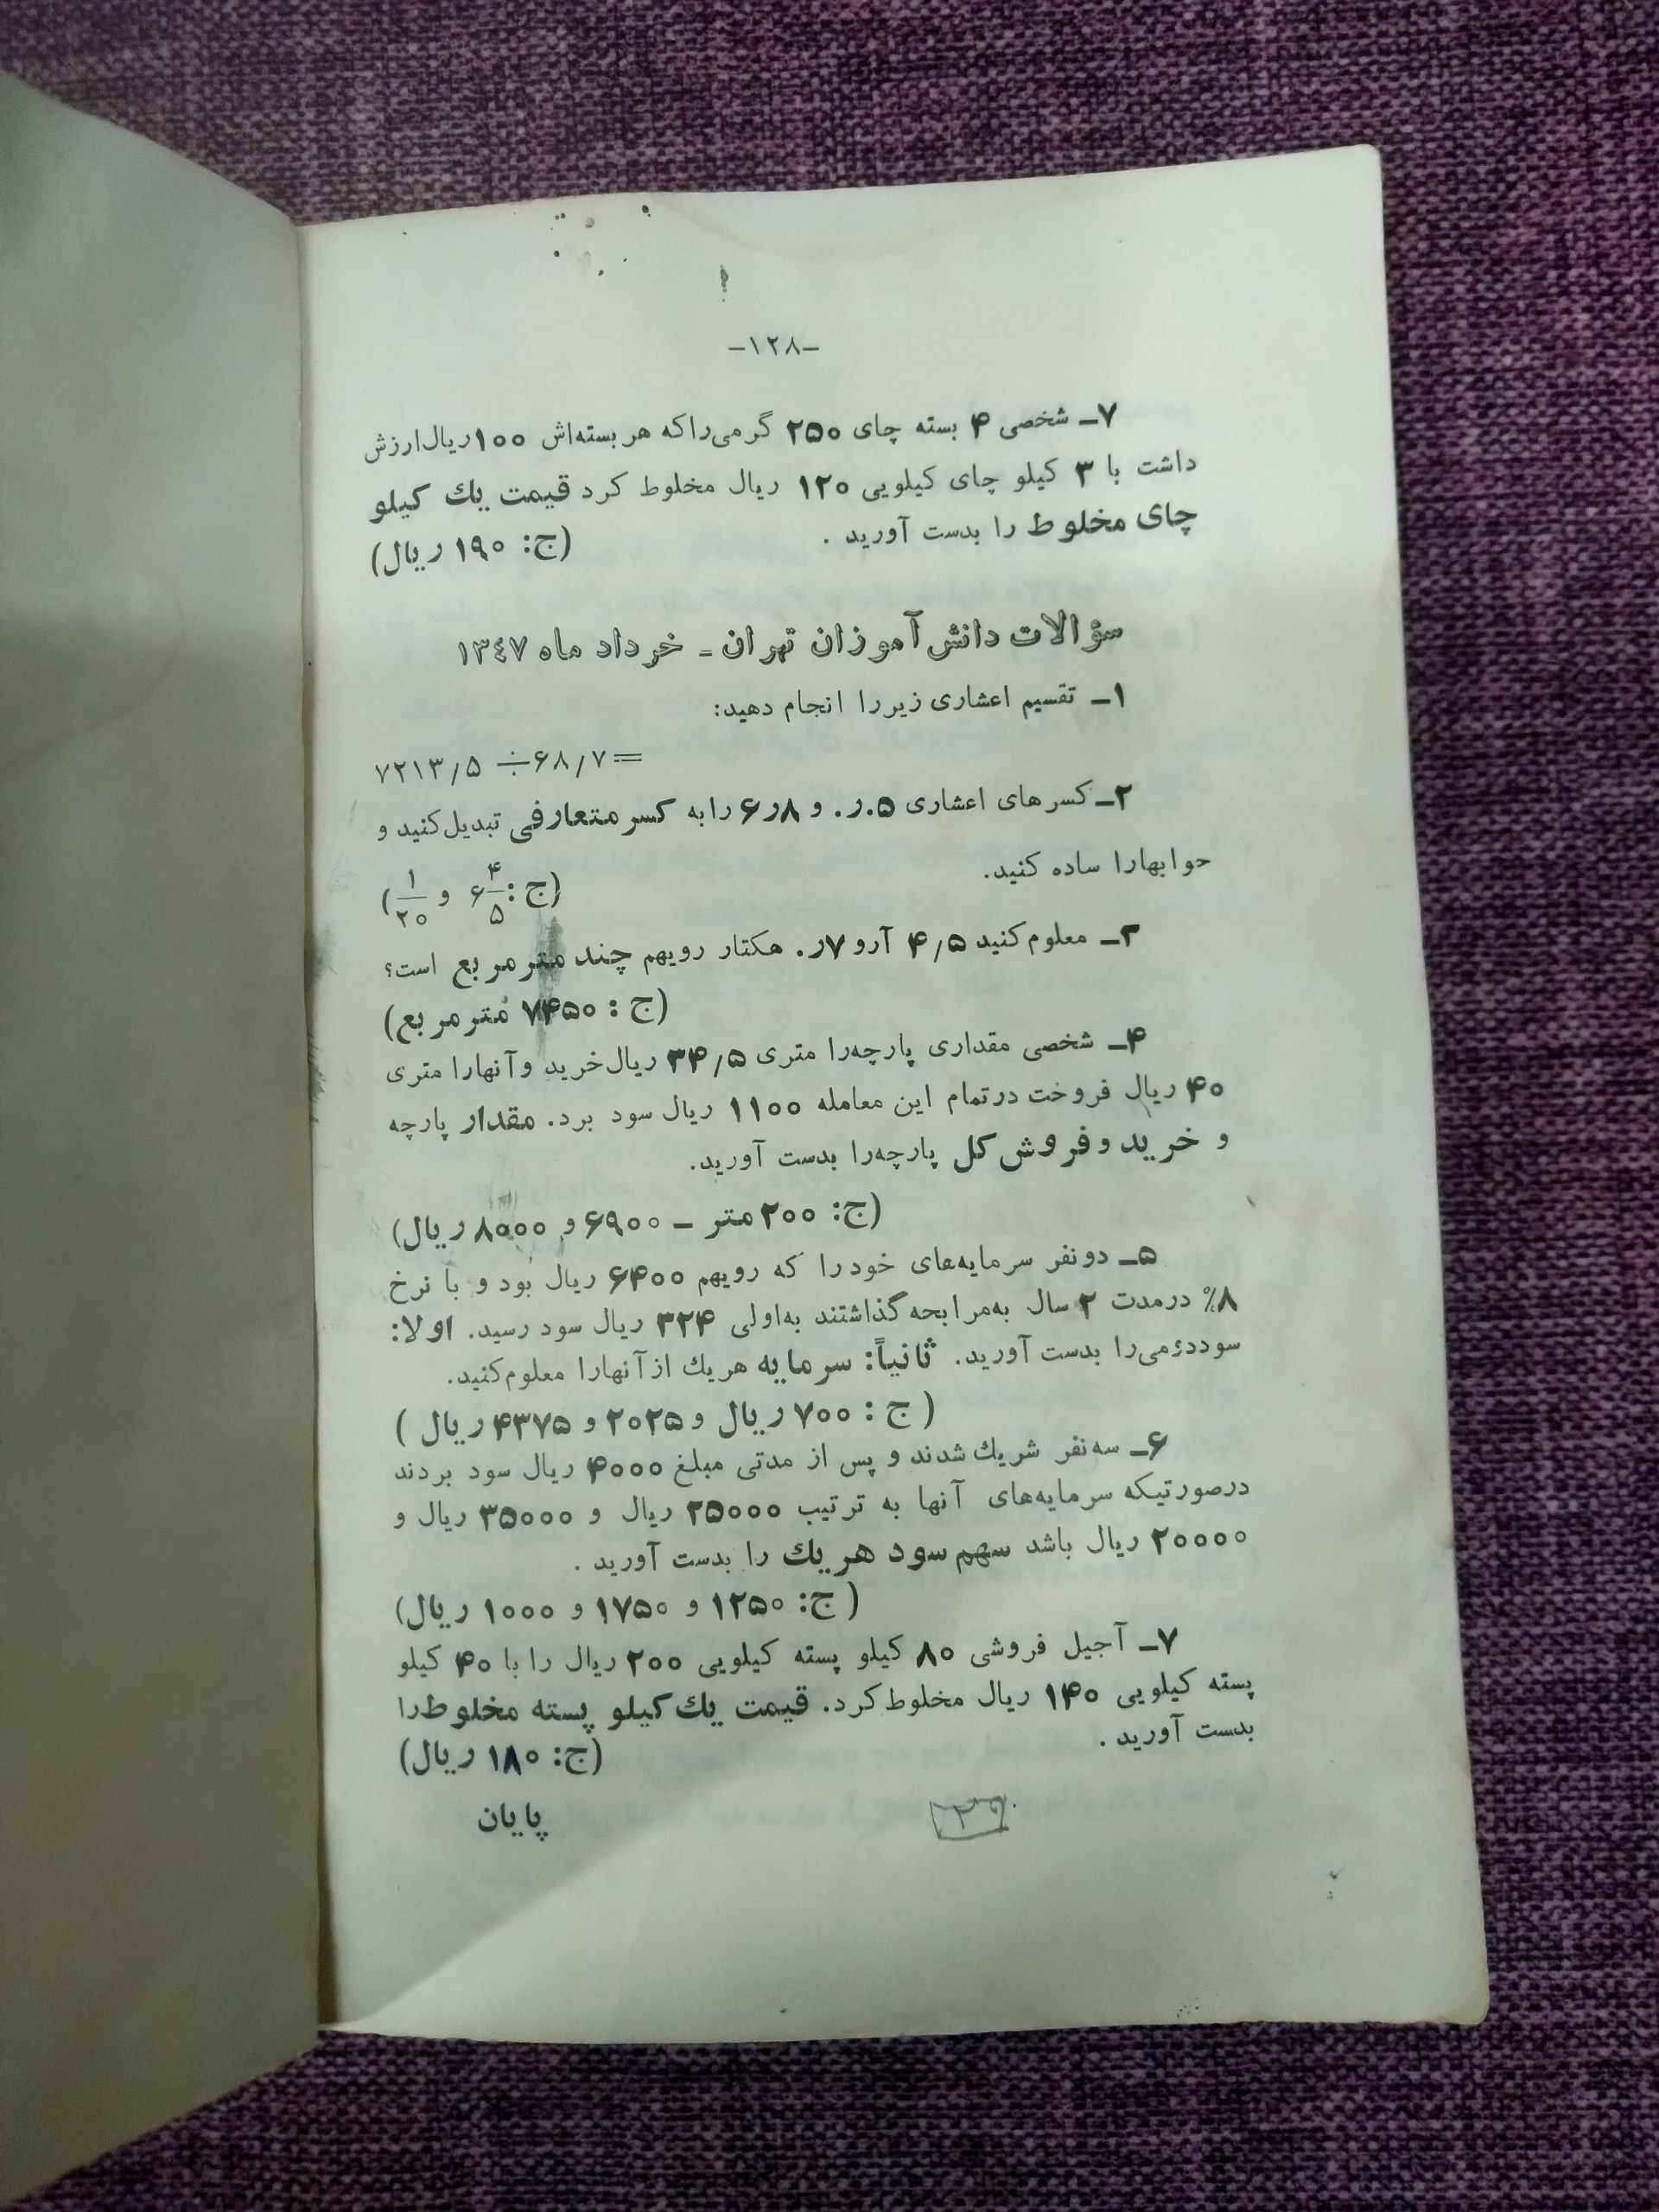 -۱۲۸-
۷ـ شخصی ۴ بسته چای ۲۵۰ گرمی‌را که هر بسته‌اش ۱۰۰ ریال ارزش
داشت با ۳ کیلو چای کیلویی ۱۲۰ ریال مخلوط کرد قیمت یك کیلو
چای مخلوط را بدست آورید .
(ج: ۱۹۰ ریال)
سؤالات دانش‌آموزان تهران ـ خرداد ماه ۱۳٤۷
۱ـ تقسیم اعشاری زیر را انجام دهید:
۷۲۱۳/۵ ÷ ۶۸/۷ =
۲ـ کسرهای اعشاری ۵.ر. و ۸ر۶ را به کسر متعارفی تبدیل کنید و
حوابهارا ساده کنید.
(ج: ۶ ۴/۵ و ۱/۲۰)
۳ـ معلوم کنید ۴/۵ آر و ۷ر. هکتار رویهم چند متر مربع است؟
(ج : ۷۴۵۰ متر مربع)
۴ـ شخصی مقداری پارچه‌را متری ۳۴/۵ ریال خرید و آنهارا متری
۴۰ ریال فروخت در تمام این معامله ۱۱۰۰ ریال سود برد. مقدار پارچه
و خرید و فروش کل پارچه‌را بدست آورید.
(ج: ۲۰۰ متر ـ ۶۹۰۰ و ۸۰۰۰ ریال)
۵ـ دو نفر سرمایه‌های خود را که رویهم ۶۴۰۰ ریال بود و با نرخ
۸٪ در مدت ۲ سال به‌مرابحه گذاشتند به‌اولی ۳۲۴ ریال سود رسید. اولا:
سود دومی‌را بدست آورید. ثانیاً: سرمایه هر یك از آنهارا معلوم کنید.
( ج : ۷۰۰ ریال و ۲۰۲۵ و ۴۳۷۵ ریال )
۶ـ سه‌نفر شریك شدند و پس از مدتی مبلغ ۴۰۰۰ ریال سود بردند
درصورتیکه سرمایه‌های آنها به ترتیب ۲۵۰۰۰ ریال و ۳۵۰۰۰ ریال و
۲۰۰۰۰ ریال باشد سهم سود هر یك را بدست آورید .
( ج: ۱۲۵۰ و ۱۷۵۰ و ۱۰۰۰ ریال)
۷ـ آجیل فروشی ۸۰ کیلو پسته کیلویی ۲۰۰ ریال را با ۴۰ کیلو
پسته کیلویی ۱۴۰ ریال مخلوط کرد. قیمت یك کیلو پسته مخلوط را
بدست آورید .
(ج: ۱۸۰ ریال)
پایان